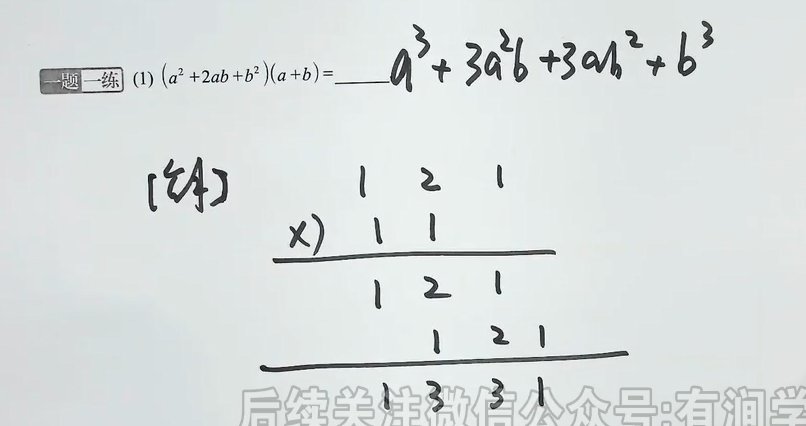 一题一练 (1) (a²+2ab+b²)(a+b)=_____ a³+3a²b+3ab²+b³
[解] 1 2 1
×) 1 1
1 2 1
1 2 1
1 3 3 1
后续关注微信公众号:有涧学